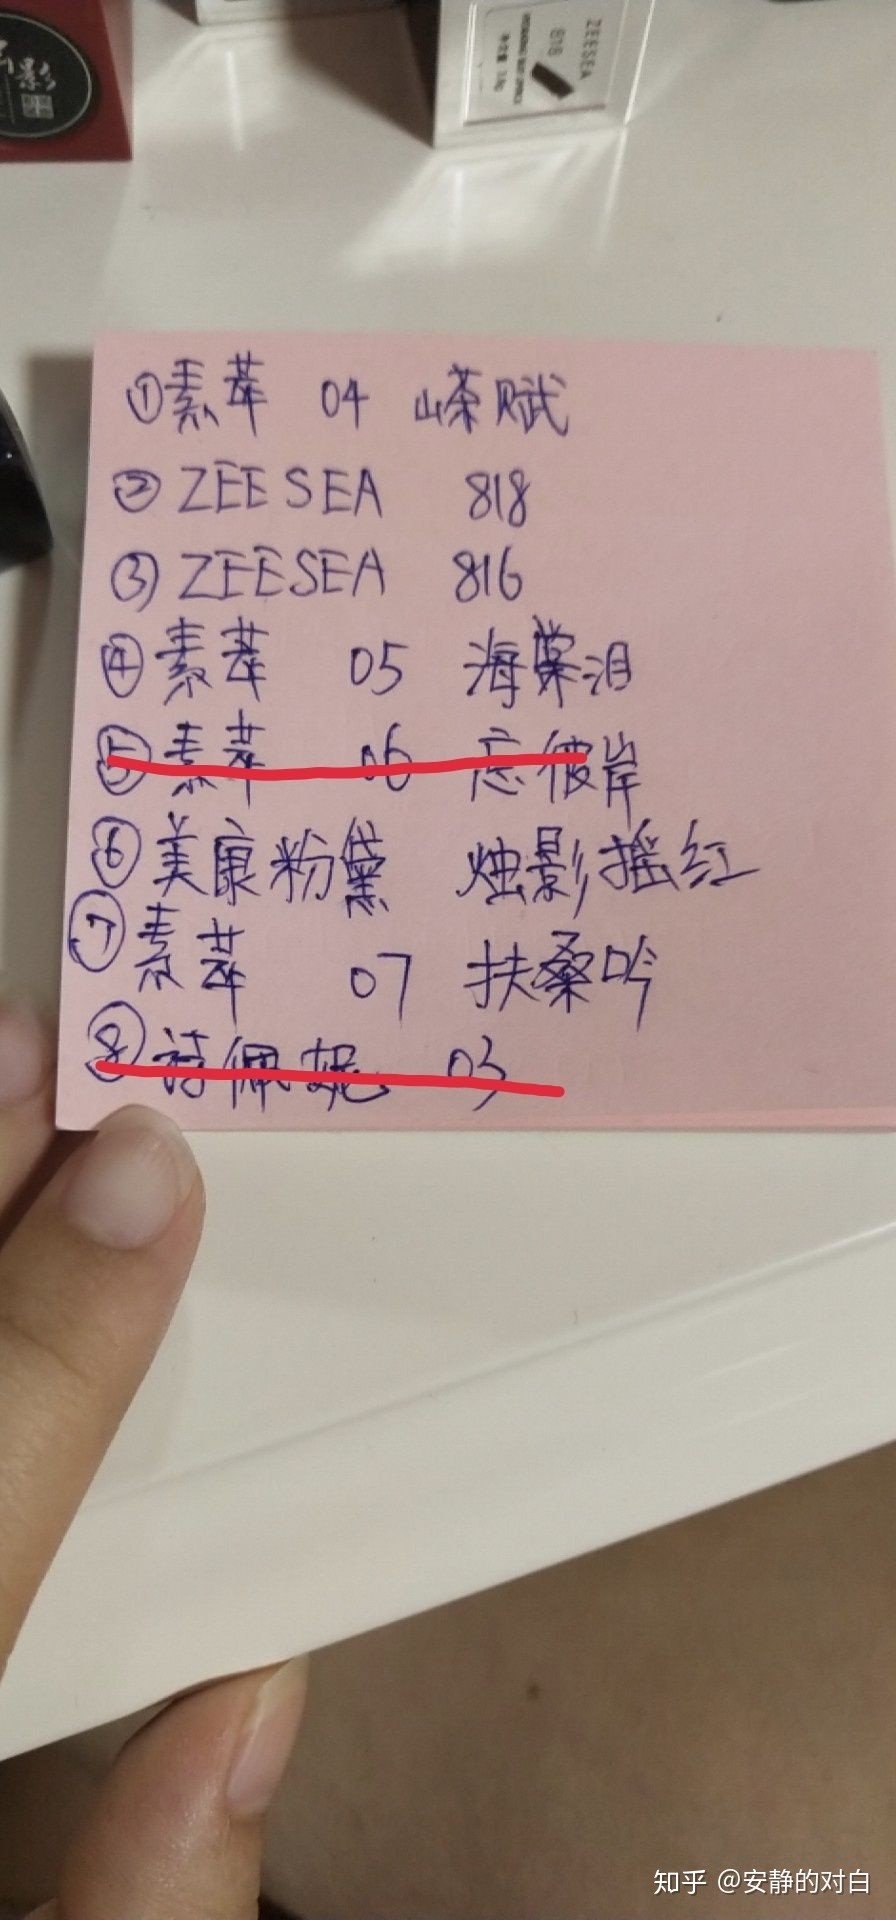 影
ZEESEA
818
①素萃 04 嵘赋
②ZEESEA 818
③ZEESEA 816
④素萃 05 海棠泪
⑤素萃 06 忘彼岸
⑥美康粉黛 烛影摇红
⑦素萃 07 扶桑吟
⑧诗佩妮 03
知乎 @安静的对白